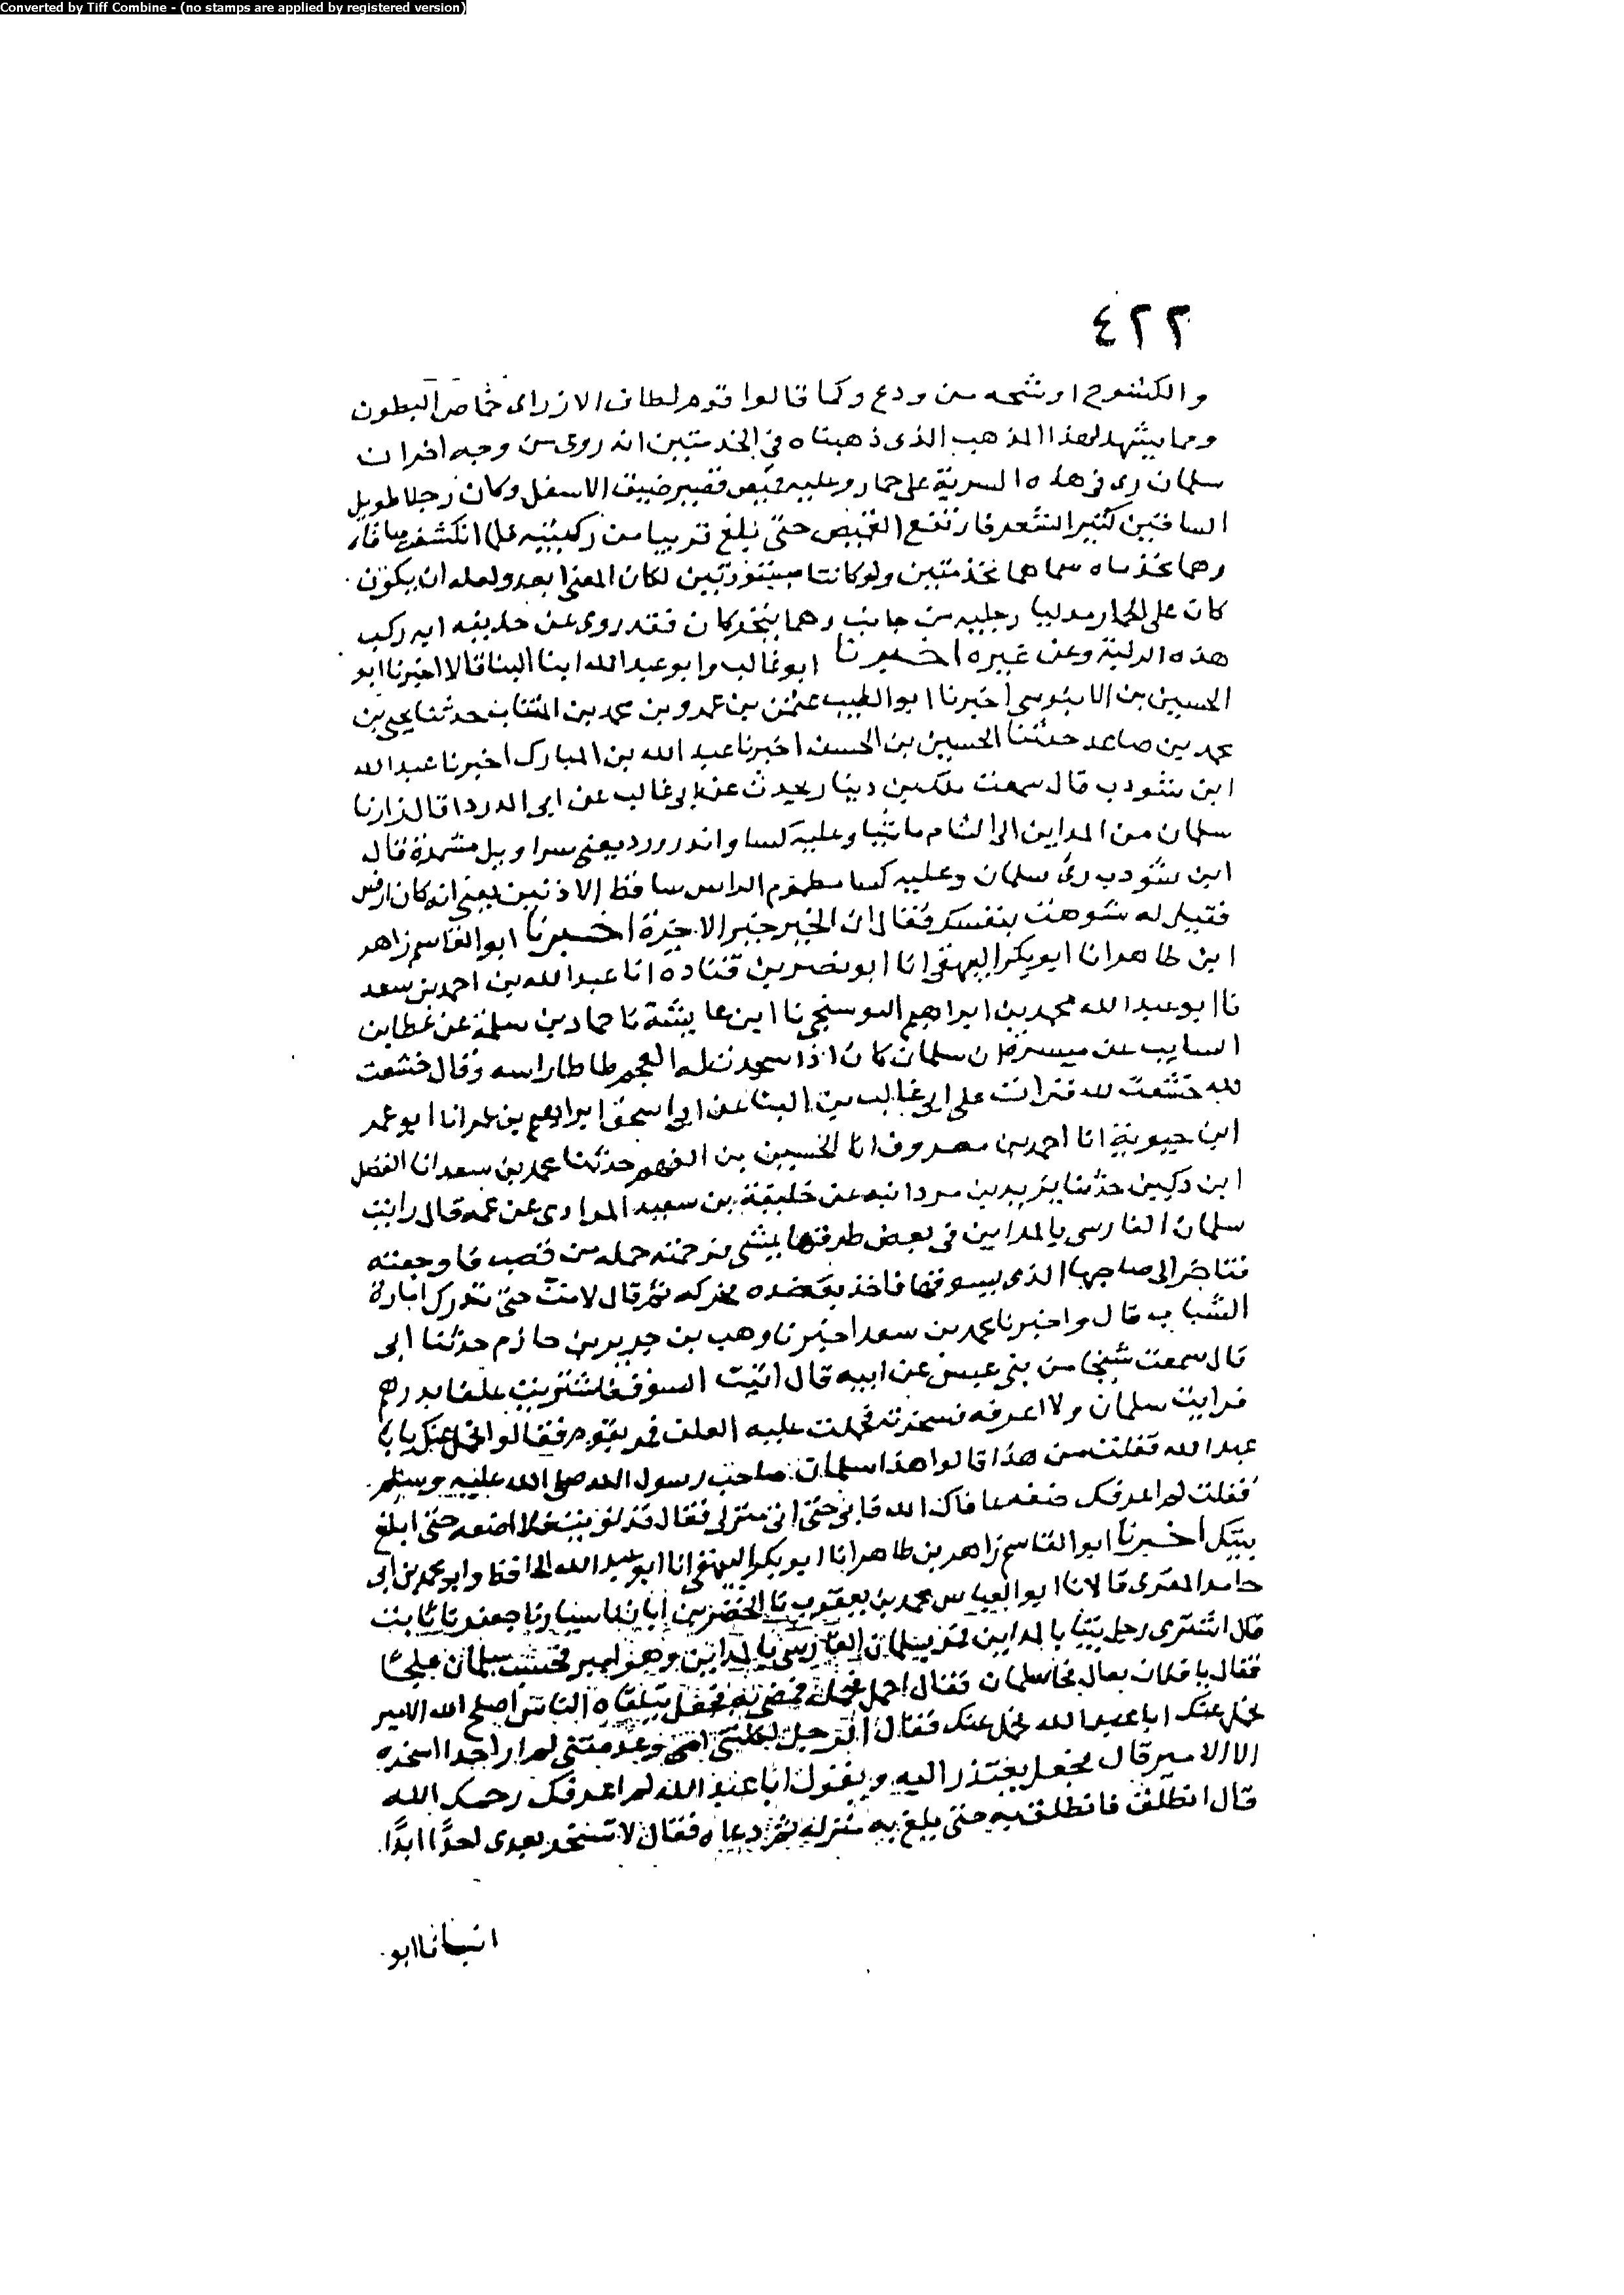 Converted by Tiff Combine - (no stamps are applied by registered version)
٤٢٢
والكشوح اوشحه من ودع وكما قالوا قوم لطاف الازراى خماص البطون
ومما يشهد لهذا المذهب الذى ذهبناه فى الخدمتين انه روى من وجه اخر ان
سلمان رى فى هذه السرية على حمار وعليه قميص قصير ضيق الاسفل وكان رجلا طويل
الساقين كثير الشعر فارتفع القميص حتى بلغ قريبا من ركبتيه فلما انكشفت ساقاه
وهما مخدماه سماهما مخدمتين ولو كانتا مستورتين لكان المعنى ابعد ولعله ان يكون
كان على الحمار مدليا رجليه من جانب وهما يتحركان فقد روى عن حذيفه انه ركب
هذه الركبة وعن غيره اخبرنا ابو غالب وابو عبد الله ابنا البنا قالا اخبرنا ابو
الحسين بن الابنوسى اخبرنا ابو الطيب عثمن بن عمرو بن محمد بن المنتاب حدثنا يحيى بن
محمد بن صاعد حدثنا الحسين بن الحسن اخبرنا عبد الله بن المبارك اخبرنا عبد الله
ابن شوذب قال سمعت ملك بن دينار يحدث عن ابى غالب عن ابى الدردا قال زارنا
سلمان من المداين الى الشام ماشيا وعليه كسا واندرورد يعنى سراويل مشمرة قال
ابن شوذب رى سلمان وعليه كسا مطموم الراس ساقط الاذنين يعنى انه كان ارفش
فقيل له شوهت بنفسك فقال ان الخير خير الاخرة اخبرنا ابو القاسم زاهر
ابن طاهر انا ابو بكر البيهقى انا ابو نصر بن قتاده انا عبد الله بن احمد بن سعد
نا ابو عبد الله محمد بن ابراهيم البوسنجى نا ابن عايشة نا حماد بن سلمة عن عطا بن
السايب عن ميسره ان سلمان كان اذا سجدت له العجم طاطا راسه وقال خشعت
لله خشعت لله قرات على ابى غالب بن البنا عن ابى اسحق ابراهيم بن عمر انا ابو عمر
ابن حيوية انا احمد بن معروف انا الحسين بن الفهم حدثنا محمد بن سعد انا الفضل
ابن دكين حدثنا يزيد بن مردانبه عن خليفة بن سعيد المرادى عن عمه قال رايت
سلمان الفارسى بالمداين فى بعض طرقها يمشى فزحمته حمله من قصب فاوجعته
فتاخر الى صاحبها الذى يسوقها فاخذ بعضده فحركه ثم قال لامت حتى تدرك امارة
الشباب قال واخبرنا محمد بن سعد اخبرنا وهب بن جرير بن حازم حدثنا ابى
قال سمعت شيخا من بنى عبس عن ابيه قال اتيت السوق فاشتريت علفا بدرهم
فرايت سلمان ولا اعرفه فسخرته فحملت عليه العلف فمر بقوم فقالوا نحمل عنك يابا
عبد الله فقلت من هذا قالوا هذا سلمان صاحب رسول الله صلى الله عليه وسلم
فقلت لم اعرفك ضعه عافاك الله فابى حتى اتى منزلى فقال قد نويت فلا اضعه حتى ابلغ
بيتك اخبرنا ابو القاسم زاهر بن طاهر انا ابو بكر البيهقى انا ابو عبد الله الحافظ وابو محمد بن ابى
حامد المقرى قالا نا ابو العباس محمد بن يعقوب نا الخضر بن ابان نا سيار نا جعفر نا ثابت
قال اشترى رجل بيتا بالمداين فمر سلمان الفارسى بالمداين وهو امير فحسب سلمان علجا
فقال يا فلان تعال فجا سلمان فقال احمل فحمله فمضى به فجعل يتلقاه الناس اصلح الله الامير
نحمل عنك ابا عبد الله نحمل عنك فقال الرجل ثكلتنى امى وعدمتنى لم ار احدا اسخره
الا الامير قال فجعل يعتذر اليه ويقول ابا عبد الله لم اعرفك رحمك الله
قال انطلق فانطلق به حتى بلغ به منزله ثم دعاه فقال لا تسخر بعدى احدا ابدا
انبانا ابو